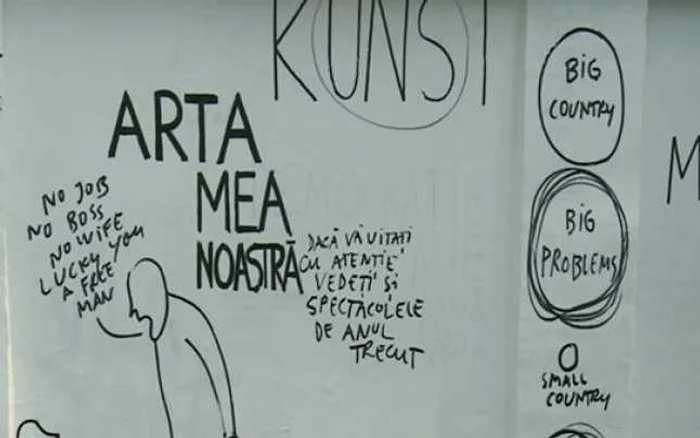 KUNST
ARTA
MEA
NOASTRĂ
NO JOB
NO BOSS
NO WIFE
LUCKY YOU
A FREE
MAN
DACĂ VĂ UITAȚI
CU ATENȚIE
VEDEȚI ȘI
SPECTACOLELE
DE ANUL
TRECUT
BIG
COUNTRY
BIG
PROBLEMS
SMALL
COUNTRY
M